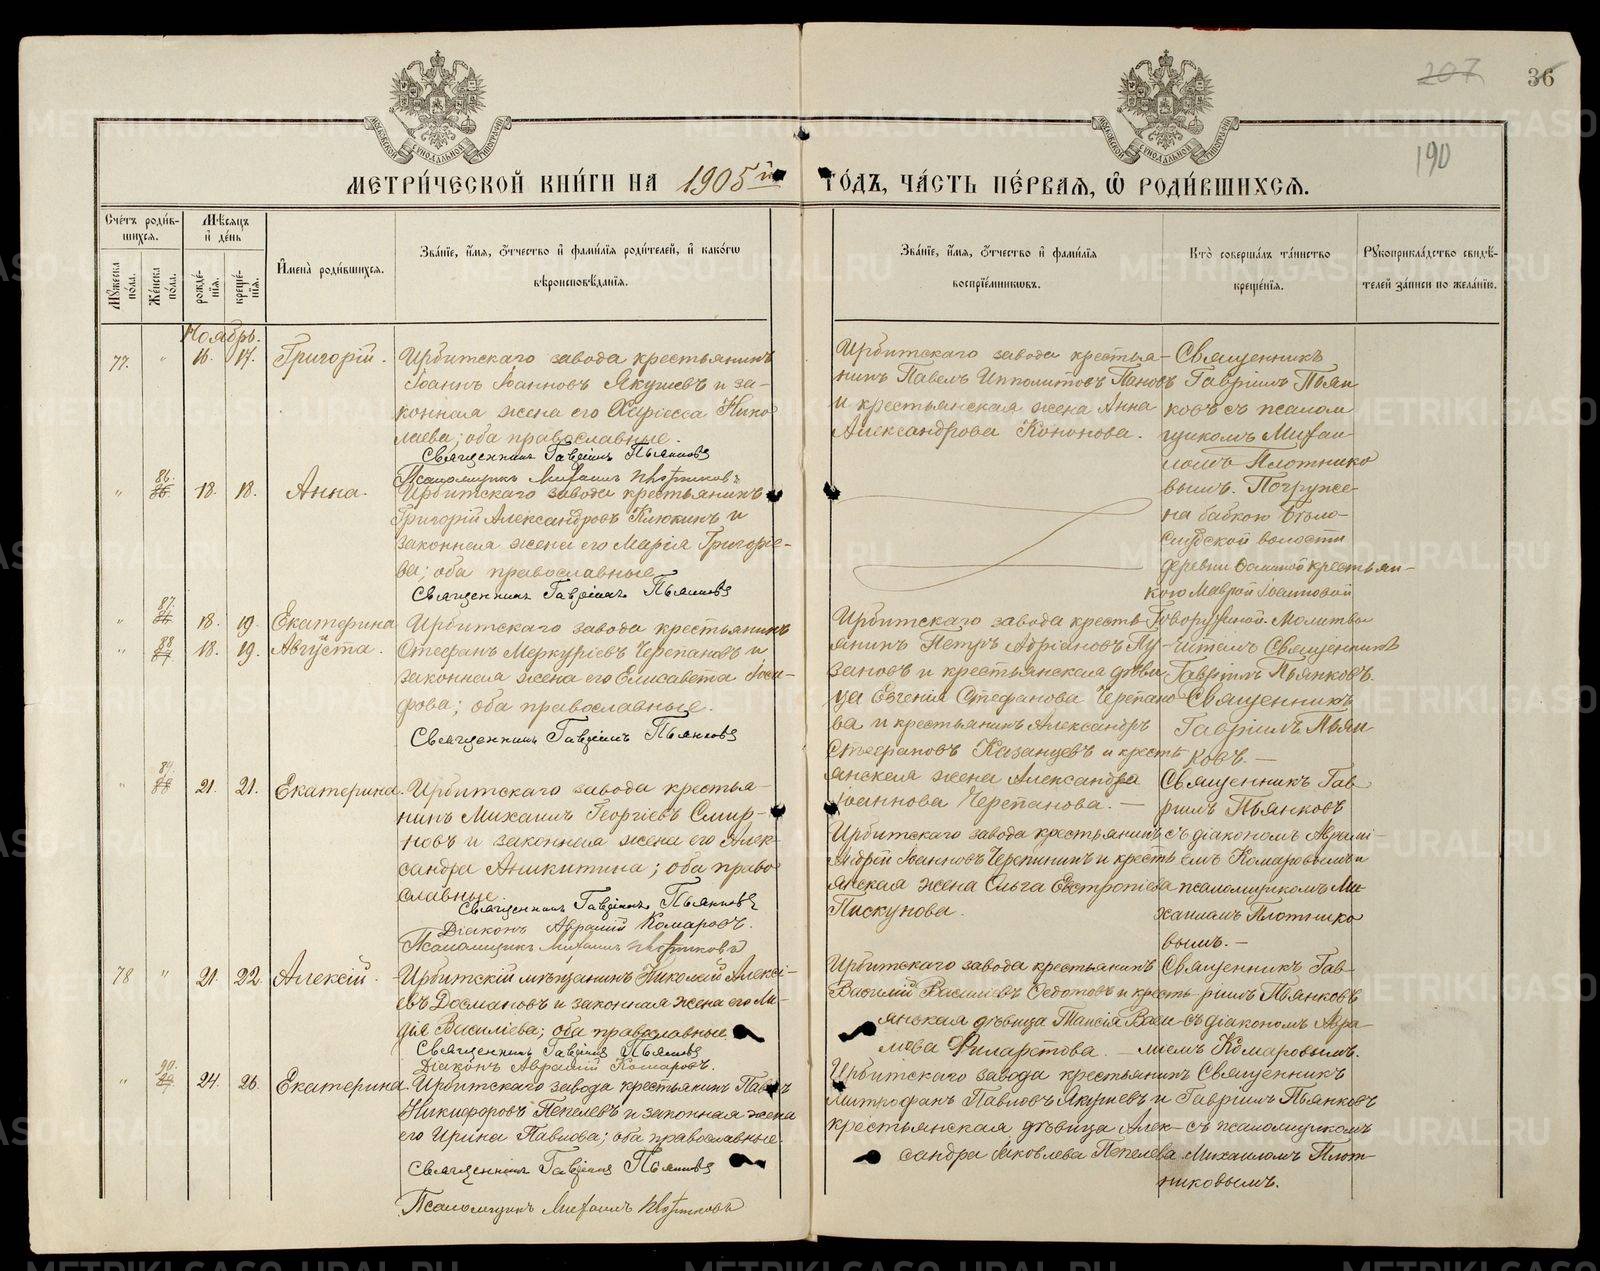 207
36
190
МЕТРИ́ЧЕСКОЙ КНИ́ГИ НА 1905й ГО́ДЪ, ЧА́СТЬ ПЕ́РВАЯ, Ѡ РОДИ́ВШИХСЯ.
Сче́тъ роди́в-
шихся.
Мѣ́сяцъ
и҆ де́нь
Мꙋ́жеска по́ла.
Же́нска по́ла.
рожде́-
нїя.
креще́-
нїя.
И҆мена̀ роди́вшихся.
Зва́нїе, и҆́мя, ѻ҆́тчество и҆ фами́лїя роди́телей, и҆ како́гѡ
вѣроисповѣ́данїя.
Зва́нїе, и҆́мя, ѻ҆́тчество и҆ фами́лїя
воспрїе́мниковъ.
Кто̀ соверша́лъ та́инство
креще́нїя.
Рꙋкоприкла́дство свидѣ́-
телей за́писи по жела́нїю.
Ноябрь.
77. " 16. 17. Григорій.
Ирбитскаго завода крестьянинъ
Іоаннъ Іоанновъ Якушевъ и за-
конная жена его Харіесса Нико
лаева; оба православные.
Священникъ Гавріилъ Пьянковъ
Псаломщикъ Михаилъ Плотниковъ
Ирбитскаго завода крестья-
нинъ Павелъ Ипполитовъ Пановъ
и крестьянская жена Анна
Александрова Кононова.
Священникъ
Гавріилъ Пьян
ковъ съ псалом
щикомъ Михаи-
ломъ Плотнико
вымъ.
" 86. 18. 18. Анна.
Ирбитскаго завода крестьянинъ
Григорій Александровъ Клюкинъ и
законная жена его Марія Григорье-
ва; оба православные
Священникъ Гавріилъ Пьянковъ
Погруже-
на бабкою Бѣло-
слудской волости
деревни крестьян-
кою Маврой Іоанновой
Говорухиной. Молитвы
читалъ Священникъ
Гавріилъ Пьянковъ.
" 87. 18. 19. Екатерина
" 88 18. 19. Августа.
Ирбитскаго завода крестьянинъ
Стефанъ Меркуріевъ Черепановъ и
законная жена его Елисавета Іоси-
фова; оба православные.
Священникъ Гавріилъ Пьянковъ
Ирбитскаго завода кресть
янинъ Петръ Адріановъ Пу-
зановъ и крестьянская дѣви
ца Евгенія Стефанова Черепано
ва и крестьянинъ Александръ
Стефановъ Казанцевъ и кресть
янская жена Александра
Іоаннова Черепанова. —
Священникъ
Гавріилъ Пьян
ковъ. —
" 89. 21. 21. Екатерина.
Ирбитскаго завода крестья-
нинъ Михаилъ Георгіевъ Смир-
новъ и законная жена его Алек-
сандра Аникитина; оба право
славные.
Священникъ Гавріилъ Пьянковъ
Діаконъ Аврамій Комаровъ.
Псаломщикъ Михаилъ Плотниковъ
Ирбитскаго завода крестьянинъ
Андрей Іоанновъ Черепинъ и кресть
янская жена Ольга Евстропіева
Пискунова.
Священникъ Гав
ріилъ Пьянковъ
съ діакономъ Аврамі-
емъ Комаровымъ и
псаломщикомъ Ми-
хаиломъ Плотнико
вымъ. —
78 " 21. 22. Алексій.
Ирбитскій мѣщанинъ Николай Алексі-
евъ Досмановъ и законная жена его Ли-
дія Василіева; оба православные.
Священникъ Гавріилъ Пьянковъ
Діаконъ Аврамій Комаровъ.
Ирбитскаго завода крестьянинъ
Василій Василіевъ Ѳедотовъ и кресть
янская дѣвица Таисія Васи-
льева Филаретова. —
Священникъ Гав-
ріилъ Пьянковъ
съ діакономъ Авра-
міемъ Комаровымъ.
" 90. 24. 26. Екатерина.
Ирбитскаго завода крестьянинъ Павелъ
Никифоровъ Пепелевъ и законная жена
его Ирина Павлова; оба православные.
Священникъ Гавріилъ Пьянковъ
Псаломщикъ Михаилъ Плотниковъ
Ирбитскаго завода крестьянинъ
Митрофанъ Павловъ Якушевъ и
крестьянская дѣвица Алек-
сандра Яковлева Пепелева.
Священникъ
Гавріилъ Пьянковъ
съ псаломщикомъ
Михаиломъ Плот-
никовымъ.
METRIKI.GASO-URAL.RU